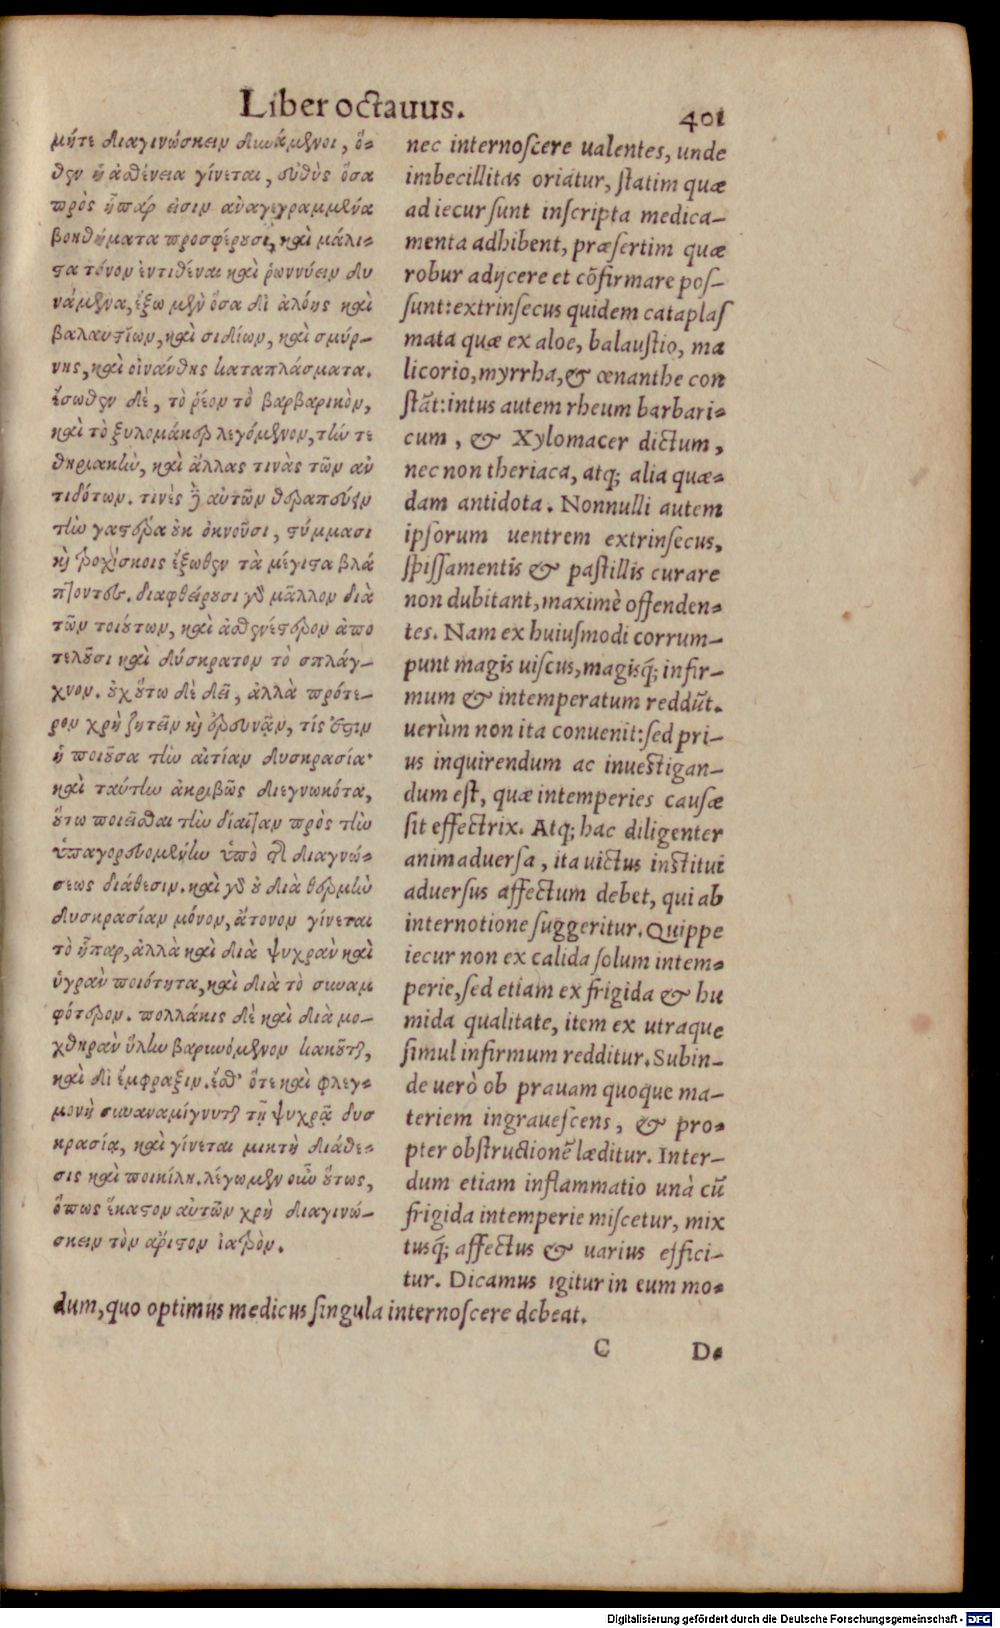 Liber octauus.
401
μήτε διαγινώσκειν δυνάμενοι, ὅ-
θεν ἡ ἀσθένεια γίνεται, εὐθὺς ὅσα
πρὸς ἧπάρ εἰσιν ἀναγεγραμμένα
βοηθήματα προσφέρουσι, καὶ μάλι-
στα τόνον ἐντιθέναι καὶ ῥωννύειν δυ
νάμενα, ἔξω μὲν ὅσα δι᾽ ἀλόης καὶ
βαλαυστίων, καὶ σιδίων, καὶ σμύρ-
νης, καὶ οἰνάνθης καταπλάσματα.
ἔσωθεν δὲ, τὸ ῥέον τὸ βαρβαρικὸν,
καὶ τὸ ξυλομάκερ λεγόμενον, τήν τε
θηριακὴν, καὶ ἄλλας τινὰς τῶν ἀν
τιδότων. τινὲς δὲ αὐτῶν θεραπεύειν
τὴν γαστέρα οὐκ ὀκνοῦσι, στύμμασι
καὶ τροχίσκοις ἔξωθεν τὰ μέγιστα βλά
πτοντες. διαφθείρουσι γὰρ μᾶλλον διὰ
τῶν τοιούτων, καὶ ἀσθενέστερον ἀπο
τελοῦσι καὶ δύσκρατον τὸ σπλάγ-
χνον. οὐχ οὕτω δὲ δεῖ, ἀλλὰ πρότε-
ρον χρὴ ζητεῖν καὶ ἐρευνᾷν, τίς ἐστιν
ἡ ποιοῦσα τὴν αἰτίαν δυσκρασία·
καὶ ταύτην ἀκριβῶς διεγνωκότα,
οὕτω ποιεῖσθαι τὴν δίαιταν πρὸς τὴν
ὑπαγορευομένην ὑπὸ τῆς διαγνώ-
σεως διάθεσιν. καὶ γὰρ οὐ διὰ θερμὴν
δυσκρασίαν μόνον, ἄτονον γίνεται
τὸ ἧπαρ, ἀλλὰ καὶ διὰ ψυχρὰν καὶ
ὑγρὰν ποιότητα, καὶ διὰ τὸ συναμ
φότερον. πολλάκις δὲ καὶ διὰ μο-
χθηρὰν ὕλην βαρυνόμενον κακοῦται,
καὶ δι᾽ ἔμφραξιν. ἔσθ᾽ ὅτε καὶ φλεγ-
μονὴ συναναμίγνυται τῇ ψυχρᾷ δυσ
κρασίᾳ, καὶ γίνεται μικτὴ διάθε-
σις καὶ ποικίλη. λέγωμεν οὖν οὕτως,
ὅπως ἕκαστον αὐτῶν χρὴ διαγινώ-
σκειν τὸν ἄριστον ἰατρὸν.
nec internoscere ualentes, unde
imbecillitas oriatur, statim quæ
ad iecur sunt inscripta medica-
menta adhibent, præsertim quæ
robur adijcere et cõfirmare pos-
sunt: extrinsecus quidem cataplas
mata quæ ex aloe, balaustio, ma
licorio, myrrha, & œnanthe con
stãt: intus autem rheum barbari-
cum, & Xylomacer dictum,
nec non theriaca, atq; alia quæ-
dam antidota. Nonnulli autem
ipsorum uentrem extrinsecus,
spissamentis & pastillis curare
non dubitant, maximè offenden-
tes. Nam ex huiusmodi corrum-
punt magis uiscus, magisq́; infir-
mum & intemperatum reddũt.
uerùm non ita conuenit: sed pri-
us inquirendum ac inuestigan-
dum est, quæ intemperies causæ
sit effectrix. Atq; hac diligenter
animaduersa, ita uictus institui
aduersus affectum debet, qui ab
internotione suggeritur. Quippe
iecur non ex calida solum intem-
perie, sed etiam ex frigida & hu
mida qualitate, item ex utraque
simul infirmum redditur. Subin-
de uerò ob prauam quoque ma-
teriem ingrauescens, & pro-
pter obstructionẽ læditur. Inter-
dum etiam inflammatio unà cũ
frigida intemperie miscetur, mix
tusq́; affectus & uarius effici-
tur. Dicamus igitur in eum mo-
dum, quo optimus medicus singula internoscere debeat.
C
De
Digitalisierung gefördert durch die Deutsche Forschungsgemeinschaft - DFG